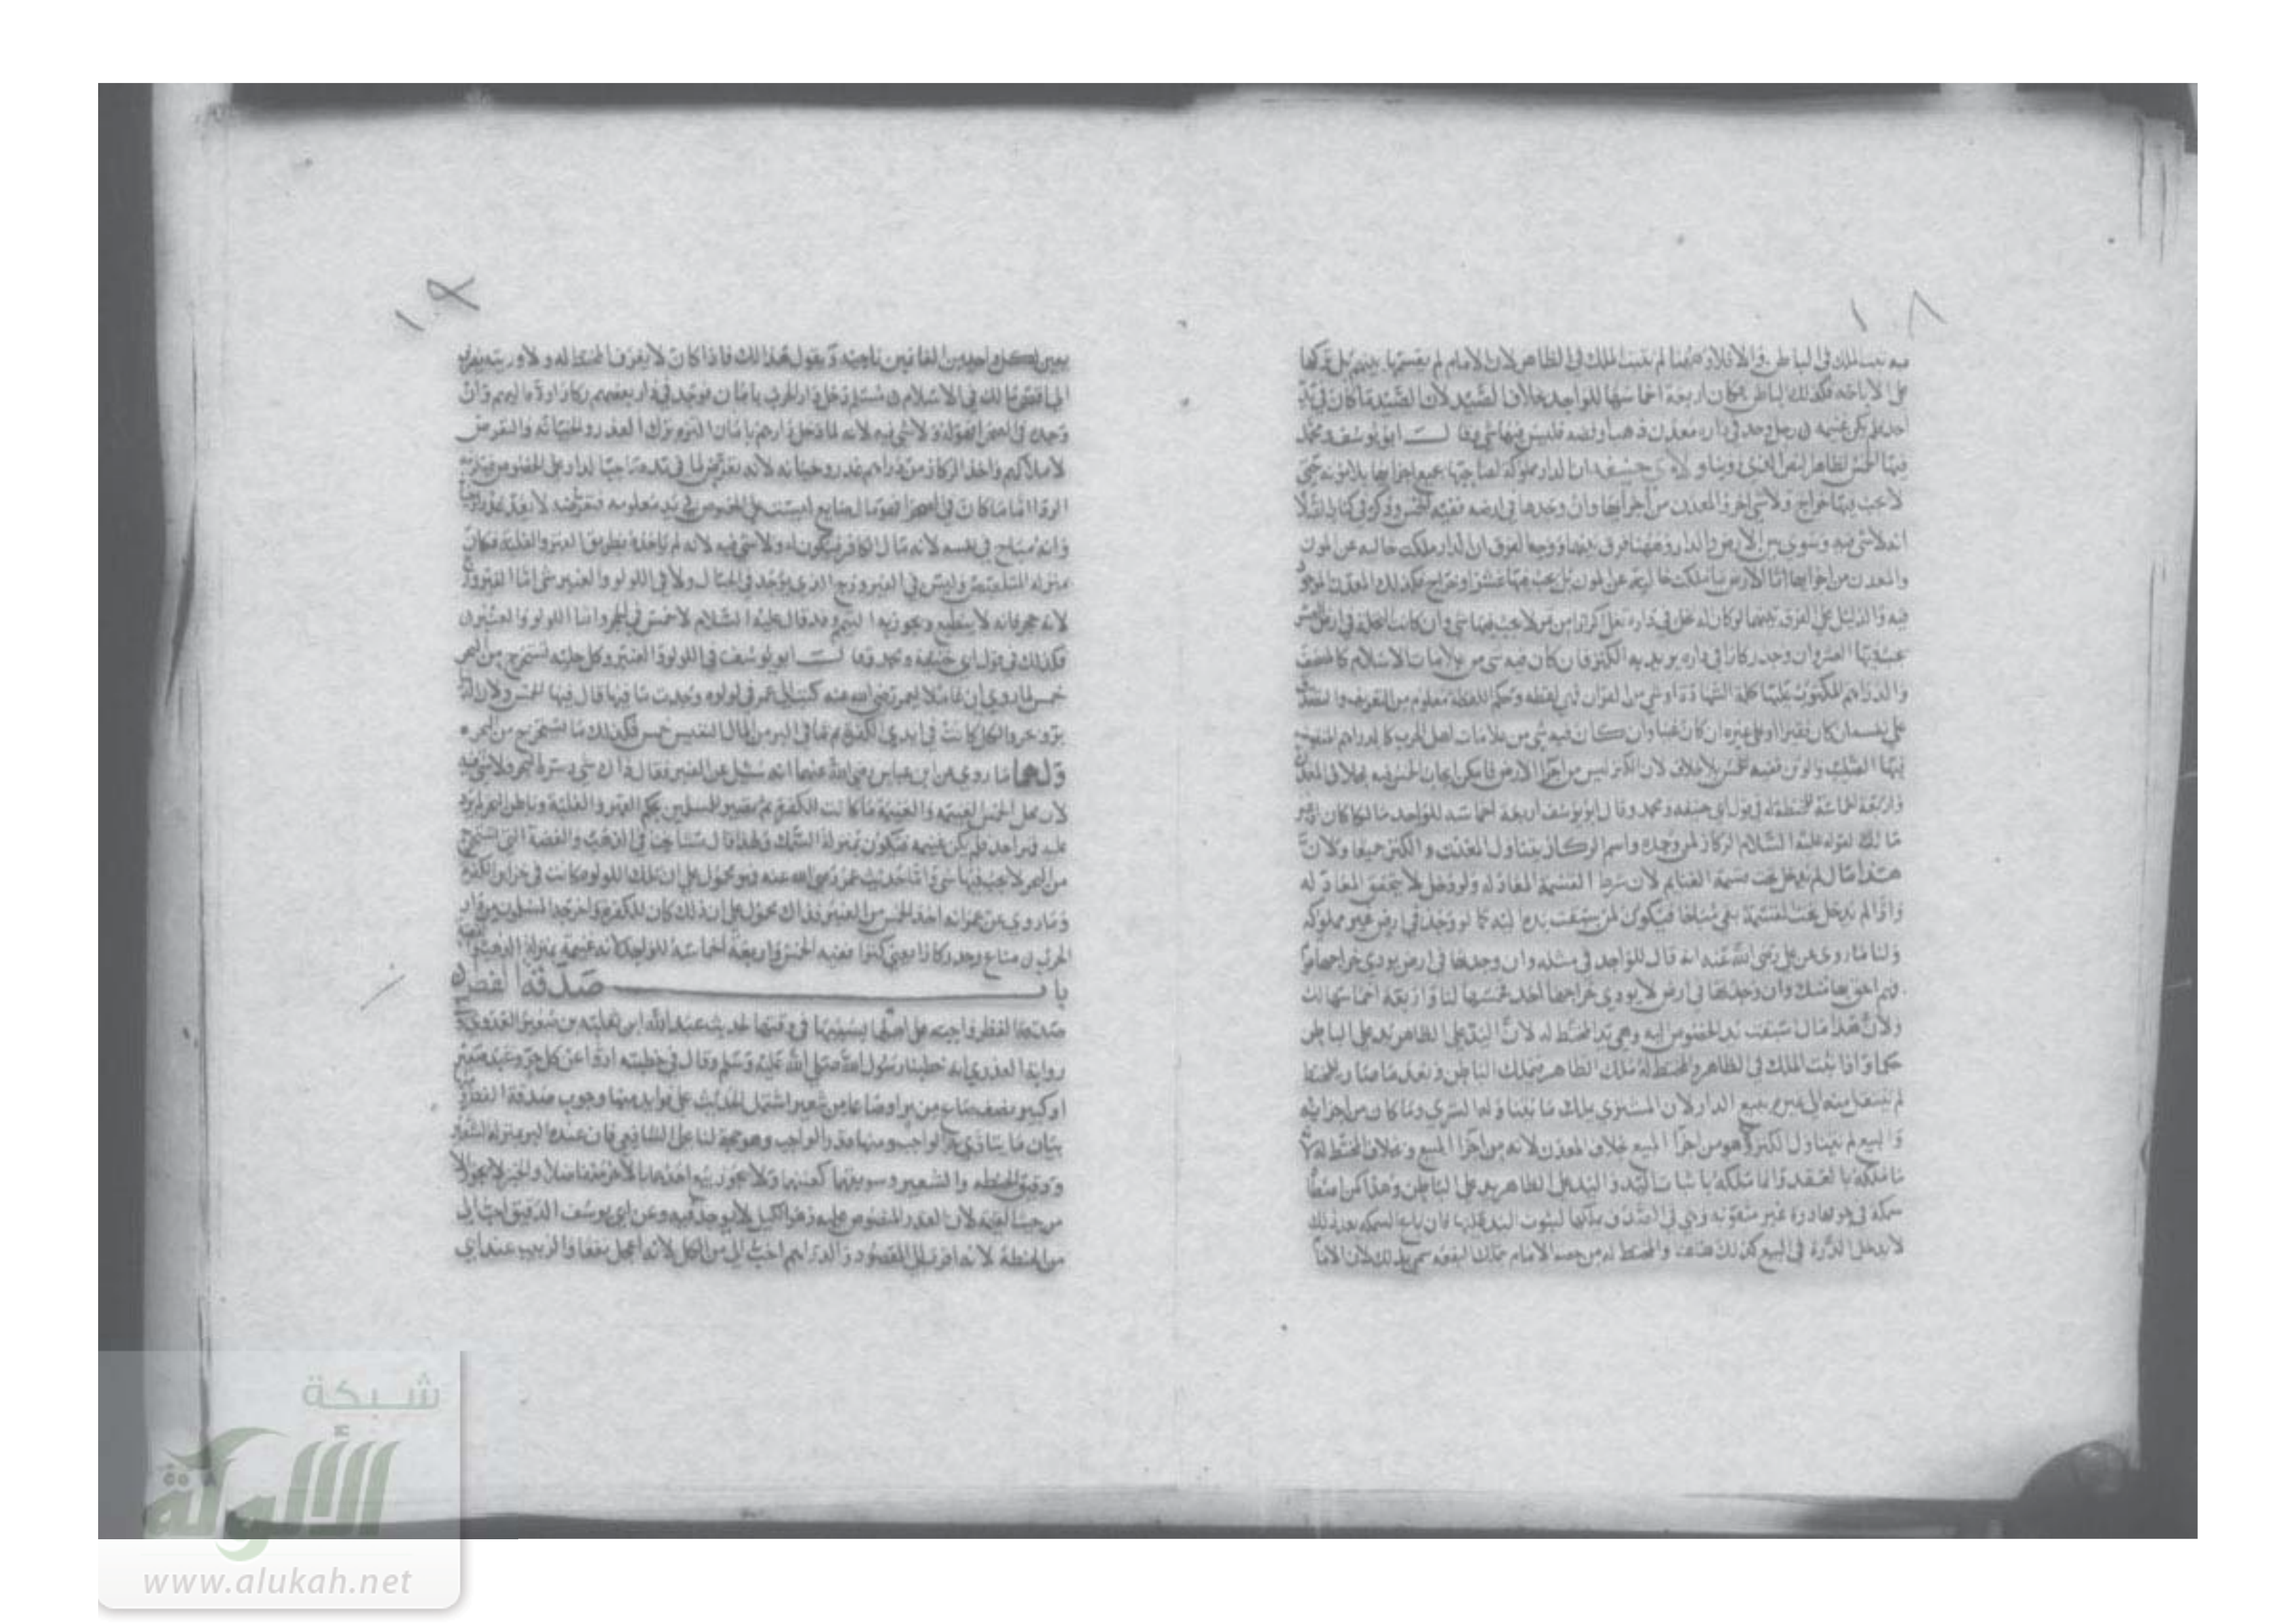 ١٠٨
فيه يثبت الملك في الباطن والا فلا وههنا لم يثبت الملك في الظاهر لان الامام لم يقسمها بينهم بل تركها
على الاباحة فكذلك الباطن فكان اربعة اخماسها للواجد بخلاف الصيد لان الصيد ما كان في يد
احد فلم يكن غنيمة رجل وجد في داره معدن ذهب او فضة فليس فيها شي وقال ابو يوسف ومحمد
فيها الخمس لظاهر النص الذي روينا ولابي حنيفة ان الدار مملوكة لصاحبها بجميع اجزائها بلا مونة حتى
لا يجب فيها خراج ولا شي اخر والمعدن من اجزائها وان وجدها في ارضه ففيه الخمس وذكر في كتاب
انه لا شي فيه وسوى بين الارض والدار وههنا فرق بينهما ووجه الفرق ان الدار ملكت خالية عن المون
والمعدن من اجزائها اما الارض ما ملكت خالية عن المون بل يجب فيها عشر او خراج فكذلك المعدن الموجود
فيه والدليل على الفرق بينهما لو كان له نخل في داره تغل اكرارا من تمر لا يجب فيها شي وان كانت النخلة في ارض العشر
العشر وان وجد ركازا في داره يريد به الكنز فان كان فيه شي من علامات الاسلام كالمصحف
والدراهم المكتوب عليها كلمة الشهادة او شي من القران فهي لقطة وحكم اللقطة معلوم من التعريف والتصدق
على نفسه ان كان فقيرا او على غيره ان كان غنيا وان كان فيه شي من علامات اهل الحرب كالدراهم المنقوشة
فيها الصليب والوثن ففيه الخمس بلا خلاف لان الكنز ليس من اجزا الارض فامكن ايجاب الخمس فيه بخلاف المعدن
واربعة اخماسه للمختط له في قول ابي حنيفة ومحمد وقال ابو يوسف اربعة اخماسه للواجد مالكا كان او غير
مالك لقوله عليه السلام الركاز لمن وجده واسم الركاز يتناول المعدن والكنز جميعا ولان
هذا مال لم يدخل تحت قسمة الغنايم لان شرط القسمة المعادلة ولو دخل لا يتحقق المعادلة
واذا لم يدخل تحت القسمة بقي مباحا فيكون لمن سبقت يده اليه كما لو وجد في ارض غير مملوكة
ولنا ما روي عن علي رضي الله عنه انه قال للواجد في مثله وان وجدتها في ارض يودي خراجها قوم
فهم احق بها منك وان وجدتها في ارض لا يودي خراجها احد فخمسها لنا واربعة اخماسها لك
ولان هذا مال سبقت يد الخصوص اليه وهي يد المختط له لان اليد على الظاهر يد على الباطن
حكما واذا ثبت الملك في الظاهر والمختط له ملك الظاهر فيملك الباطن وبعد ما صار للمختط
لم ينتقل منه الى غيره ببيع الدار لان المشتري يملك ما يتناوله الشري وما كان من اجزائه
والبيع لم يتناول الكنز ولا هو من اجزا المبيع بخلاف المعدن لانه من اجزا المبيع وبخلاف المختط له لانه
ما ملكه بالعقد وانما ملكه باثبات اليد واليد على الظاهر يد على الباطن وهذا كمن اصطاد
سمكة في جوفها درة غير مثقوبة وهي في الصدف ملكها لثبوت اليد عليها فان باع السمكة بعد ذلك
لا يدخل الدرة في البيع كذلك هذا والمختط له من خصه الامام بتملك البقعة سمي بذلك لان الاما
١٠٩
يعين لكل واحد من الغانمين ناحية ويقول هذا لك فاذا كان لا يعرف المختط له ولا ورثته يصرف
الى اقصى مالك في الاسلام مسلم دخل دار الحرب بامان فوجد في دار بعضهم ركازا رده اليهم وان
وجده في الصحرا فهو له ولا شي فيه لانه لما دخل دارهم بامان التزم ترك الغدر والخيانة والتعرض
لاملاكهم واخذ الركاز من دارهم غدر وخيانة لانه تعرض لما في يد صاحب الدار على الخصوص فيلزمه
الرد اما ما كان في الصحرا ليست على الخصوص في يد معلومة فتعرضه لا يعد غدرا
وانه مباح في نفسه لانه مال الكافر فيكون له ولا شي فيه لانه لم ياخذه بطريق القهر والغلبة فكان
بمنزلة المتلصص وليس في الفيروزج الذي يوجد في الجبال ولا في اللولو والعنبر شي اما الفيروزج
لانه حجر فانه لا ينطبع ويجوز به التيمم وقد قال عليه السلام لا خمس في الحجر واما اللولو والعنبر
فكذلك في قول ابي حنيفة ومحمد وقال ابو يوسف في اللولو والعنبر وكل حلية تستخرج من البحر
خمس لما روي ان عاملا لعمر رضي الله عنه كتب الى عمر في لولوه وجدت ما فيها قال فيها الخمس ولان
كانت في ايدي الكفرة ثم ما في البر من المال النفيس خمس فكذلك ما يستخرج من البحر
ولهما ما روي عن ابن عباس رضي الله عنهما انه سئل عن العنبر فقال ذاك شي دسره البحر ولا شي فيه
لان محل الخمس الغنيمة والغنيمة ما كانت للكفرة ثم تصير للمسلمين بحكم القهر والغلبة وباطن البحر لم يرد
عليه قهر احد فلم يكن غنيمة فيكون بمنزلة السمك ولهذا قال مشايخنا في الذهب والفضة التي تستخرج
من البحر لا يجب فيها شي واما حديث عمر رضي الله عنه فهو محمول على ان تلك اللولوه كانت في خزاين الكفرة
وما روي عن عمر انه اخذ الخمس من العنبر فذاك محمول على ان ذلك كان للكفرة واخرجه المسلمون من دار
الحرب متاع وجد ركازا يعني كنزا ففيه الخمس واربعة اخماسه للواجد لانه غنيمة بمنزلة الذهب
باب صدقة الفطر
صدقة الفطر واجبة على اصلها بسببها في وقتها لحديث عبد الله ابن ثعلبة بن صعير العدوي
رواية العذري انه خطبنا رسول الله صلى الله عليه وسلم وقال في خطبته ادوا عن كل حر وعبد صغير
او كبير نصف صاع من بر او صاعا من شعير اشتمل الحديث على فوايد منها وجوب صدقة الفطر
بيان ما يتادى به الواجب ومنها قدر الواجب وهو حجة لنا على الشافعي فان عنده البر بمنزلة الشعير
ودقيق الحنطة والشعير وسويقهما كعينهما ولا يجوز بيع احدهما بالاخر متفاضلا والخبز لا يجوز الا
من حيث القيمة لان القدر المنصوص عليه وهو الكيل لا يوجد فيه وعن ابي يوسف الدقيق احب الي
من الحنطة لانه اقرب الى المقصود والدراهم احب الي من الكل لانه اعجل نفعا والزبيب عند ابي
شبكة
الألوكة
www.alukah.net